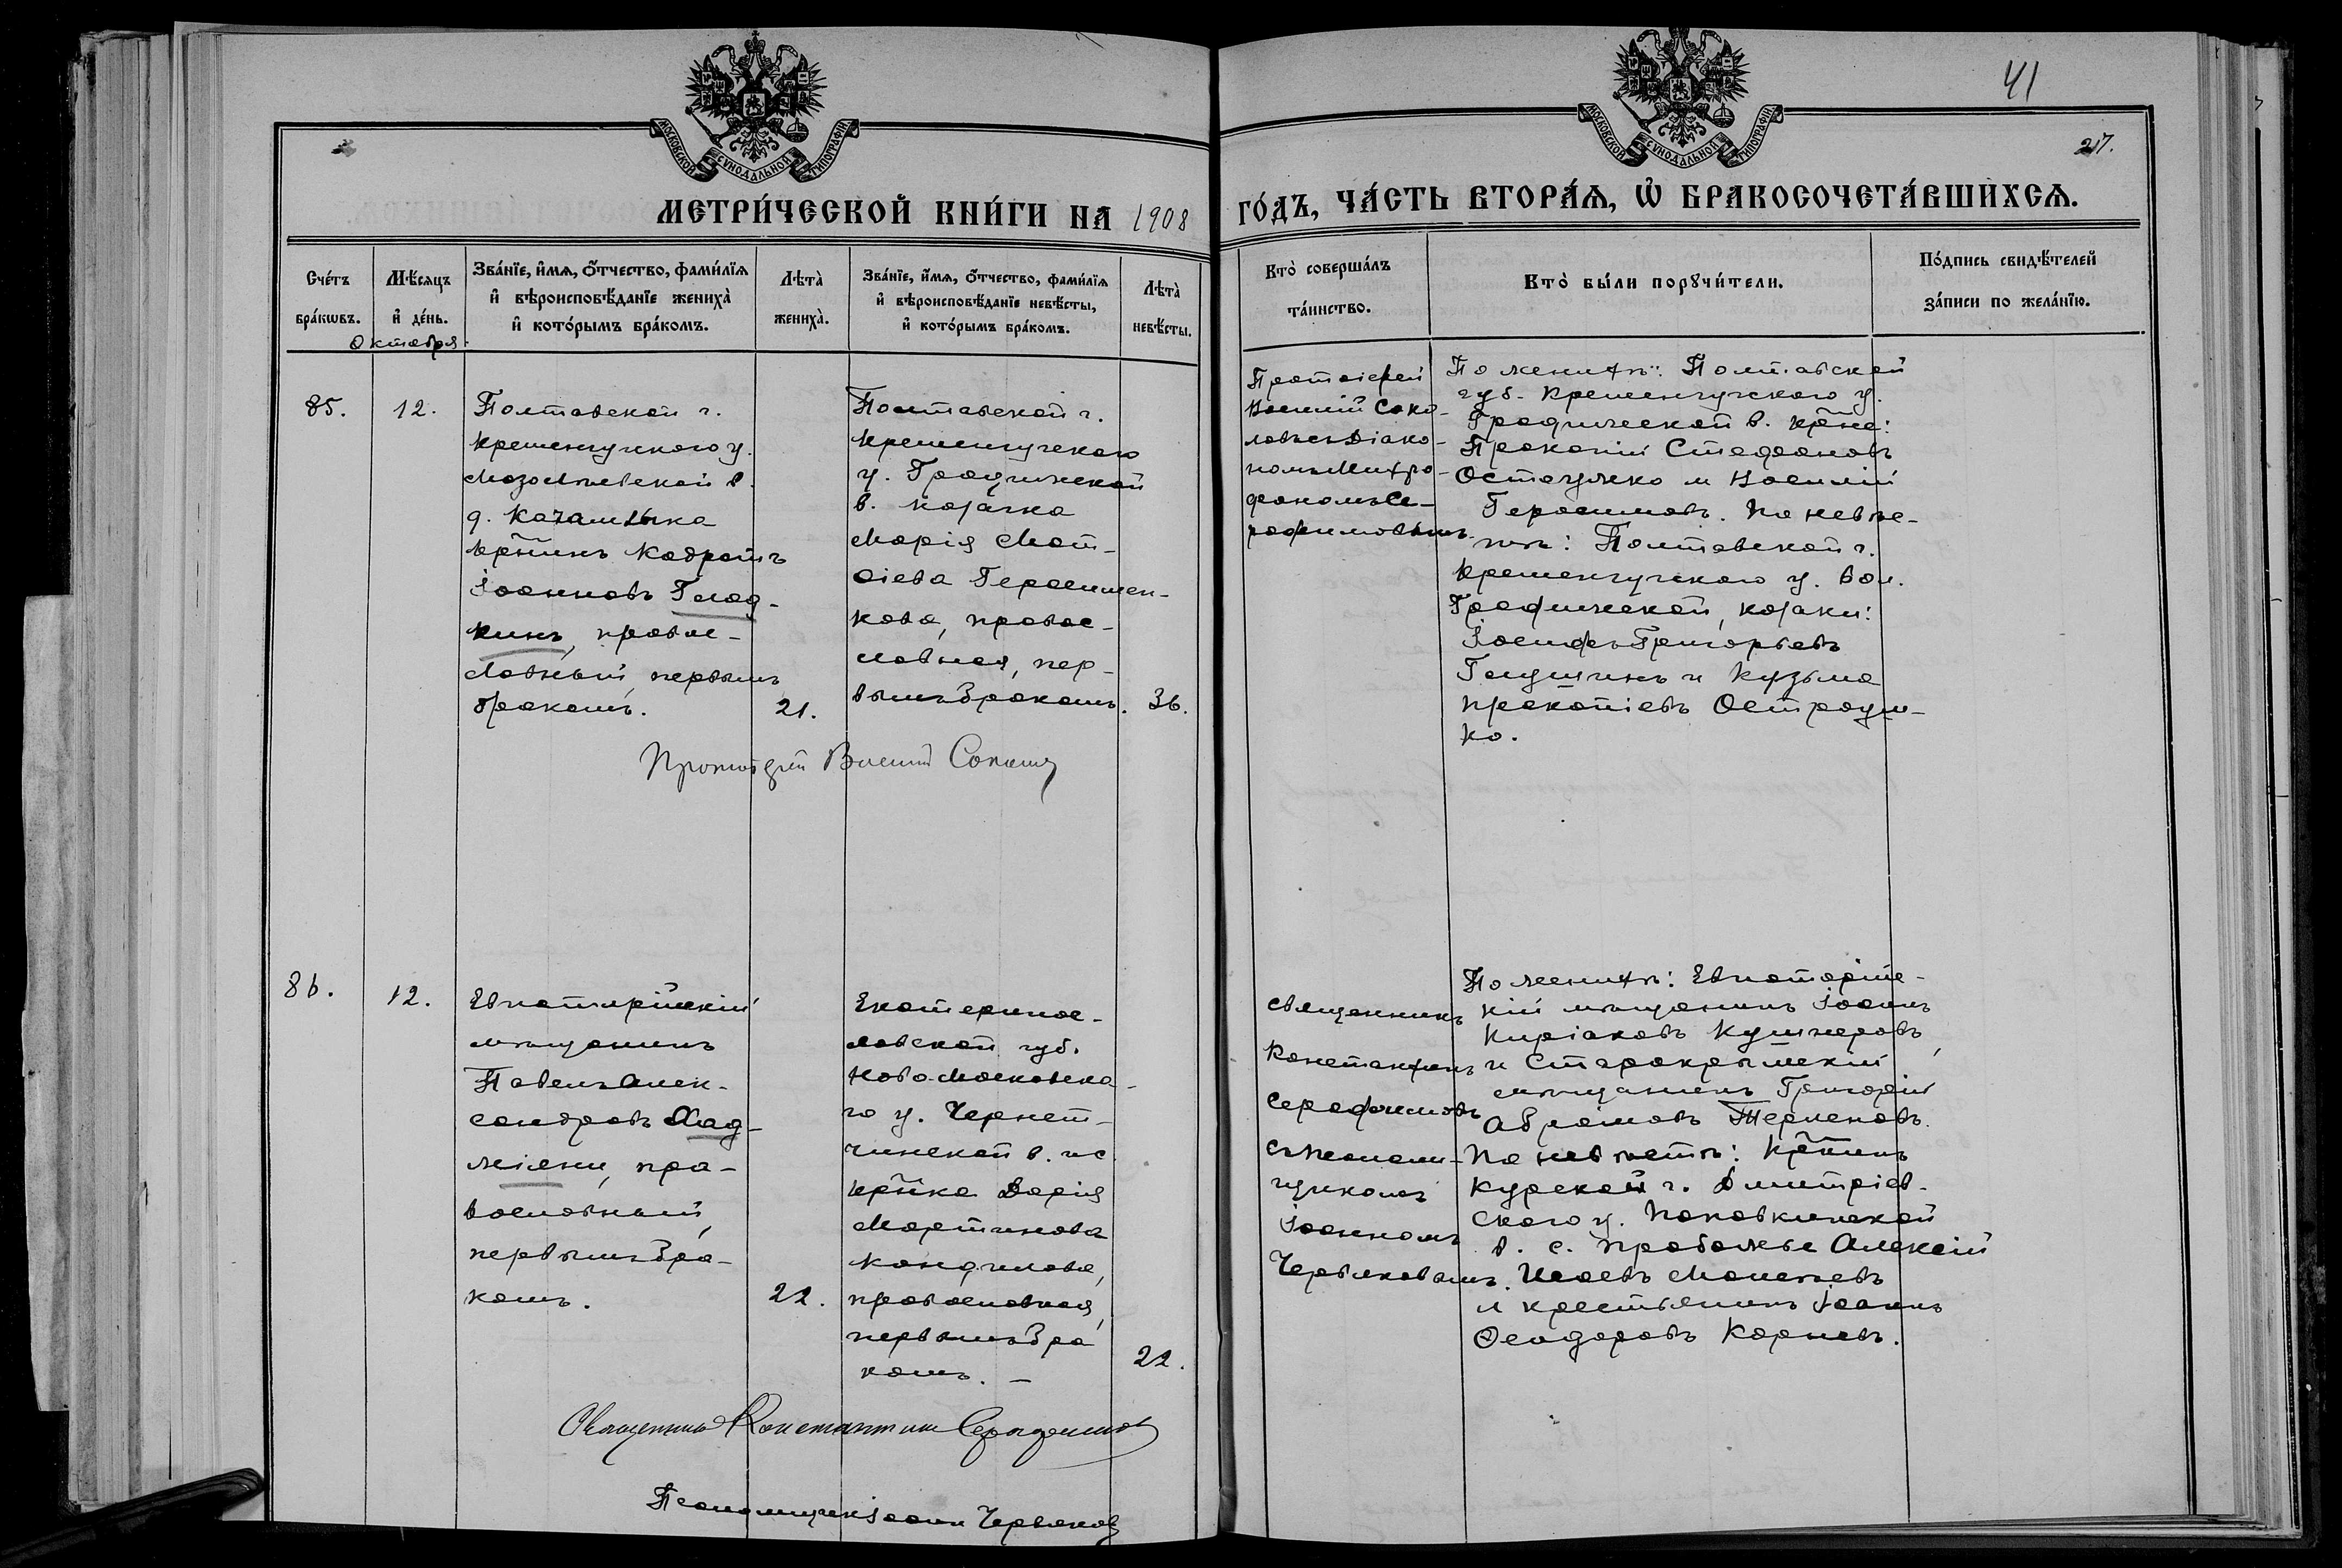 41
217.
МОСКОВСКОЙ СУНОДАЛЬНОЙ ТИПОГРАФІИ
МОСКОВСКОЙ СУНОДАЛЬНОЙ ТИПОГРАФІИ
МЕТРИ́ЧЕСКОЙ КНИ́ГИ НА 1908 ГО́ДЪ, ЧА́СТЬ ВТОРА́Я, Ѡ БРАКОСОЧЕТА́ВШИХСЯ.
Сче́тъ
бра́кѡвъ.
Мѣ́сяцъ
и҆ де́нь.
Октября
Зва́нїе, и҆́мя, ѻ҆́тчество, фами́лїя
и҆ вѣроисповѣ́данїе жениха̀
и҆ кото́рымъ бра́комъ.
Лѣта̀
жениха̀.
Зва́нїе, и҆́мя, ѻ҆́тчество, фами́лїя
и҆ вѣроисповѣ́данїе невѣ́сты,
и҆ кото́рымъ бра́комъ.
Лѣта̀
невѣ́сты.
Кто̀ соверша́лъ
та́инство.
Кто̀ бы́ли порꙋчи́тели.
По́дпись свидѣ́телей
за́писи по жела́нїю.
85.
12.
Полтавской г.
Кременчугского у.
в.
д.
крнинъ Кодратъ
Іоанновъ Глад-
кинъ, правос-
лавный, первымъ
бракомъ.
21.
Полтавской г.
Кременчугскаго
у. Градижской
в. козачка
Марія Мат-
ѳіева Герасимен-
кова, правос-
лавная, пер-
вымъ бракомъ.
36.
Протоіерей
Василій Соко-
ловъ съ Діако-
номъ Митро-
фаномъ Се-
рафимовымъ.
По женихѣ: Полтавской
губ. Кременчугского у.
Градижской в. крне:
Прокопій Стефановъ
и Василій
Герасимовъ. По невѣс-
тѣ: Полтавской г.
Кременчугского у. вол.
Градижской, козаки:
Іосифъ Григорьевъ
и Кузьма
Прокопіевъ Остроуш-
ко.
Протоіерей Василій Соколовъ
86.
12.
Евпаторійскій
мѣщанинъ
Павелъ Алек-
сандровъ Хад-
жіяни, пра-
вославный,
первымъ бра-
комъ.
22.
Екатеринос-
лавской губ.
Ново-Московска-
го у. Чернет-
чинской в. и с.
крнка Дарія
Мартинова
Кондилова,
православная,
первымъ бра
комъ. —
22.
Священникъ
Константинъ
Серафимовъ
съ псалом-
щикомъ
Іоанномъ
Червяковымъ.
По женихѣ: Евпаторійс-
кій мѣщанинъ Іоаннъ
Киріаковъ Кушнеровъ,
и Старокрымскій
мѣщанинъ Григорій
Абрамовъ Терленовъ.
По невѣстѣ: Крнинъ
Курской г. Дмитріев-
ского у. Поповкинской
в. с. Алексій
Исаевъ
и крестьянинъ Іоаннъ
Ѳеодоровъ Корневъ.
Священникъ Константинъ Серафимовъ
Псаломщикъ Іоаннъ Червяковъ